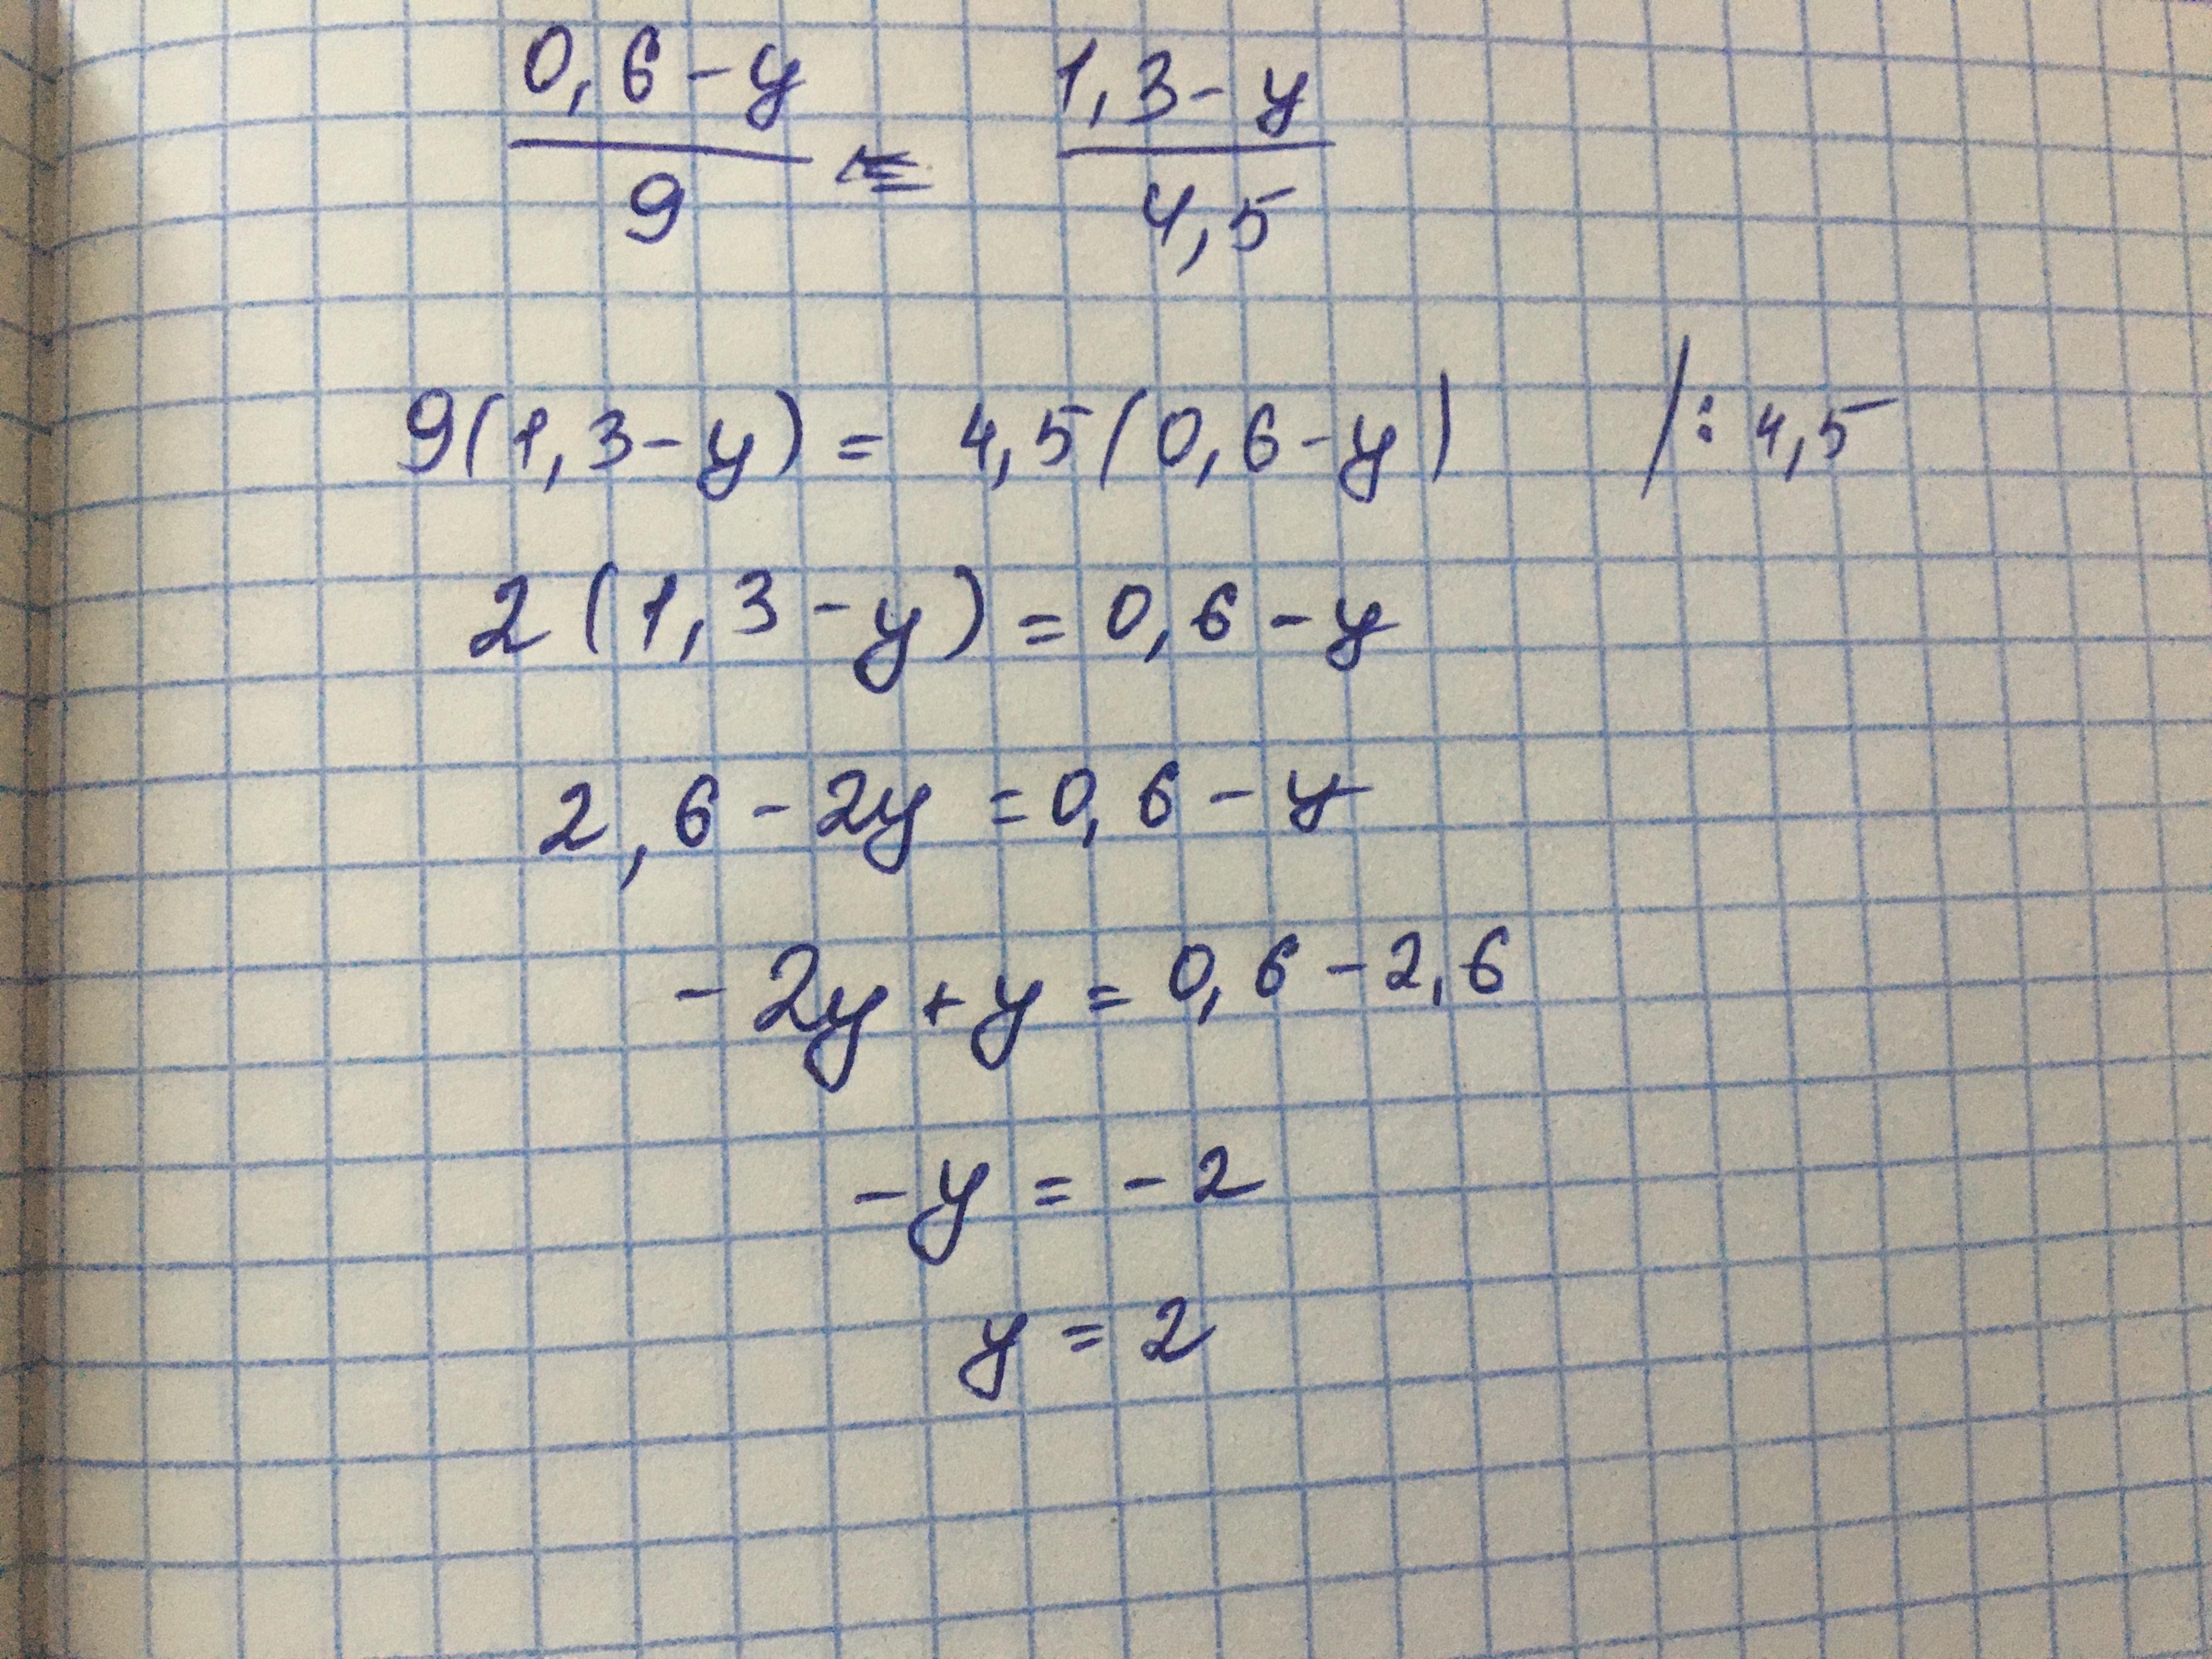 0,6-y / 9 = 1,3-y / 4,5
9(1,3-y) = 4,5(0,6-y) /: 4,5
2(1,3-y) = 0,6-y
2,6-2y = 0,6-y
-2y+y = 0,6-2,6
-y = -2
y = 2